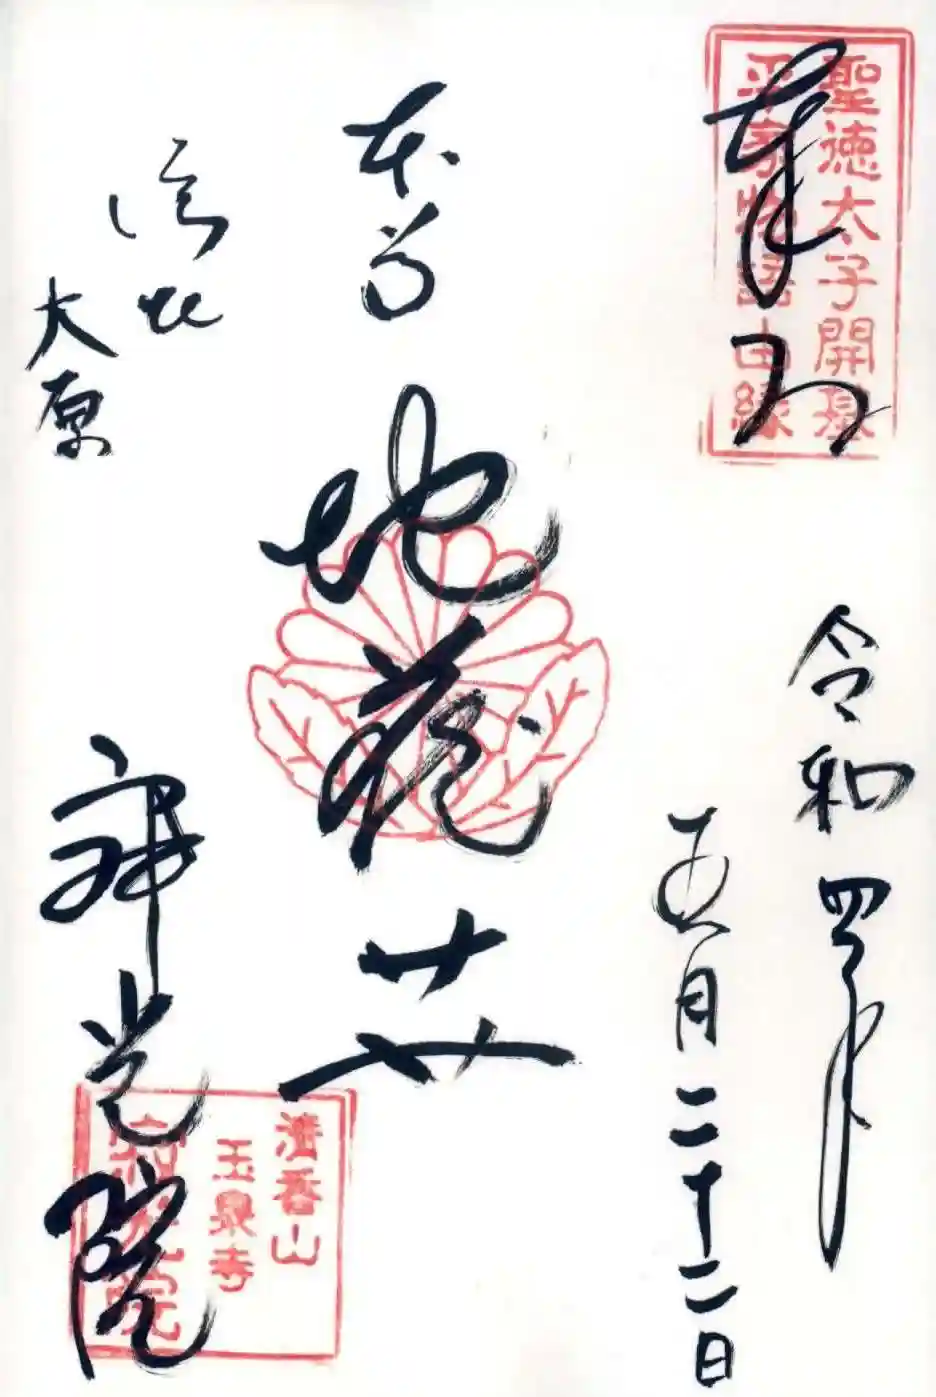 奉拝
聖徳太子開基
平家物語由縁
令和四年
五月二十二日
本尊
地蔵廾
洛北
大原
寂光院
清香山
玉泉寺
寂光院